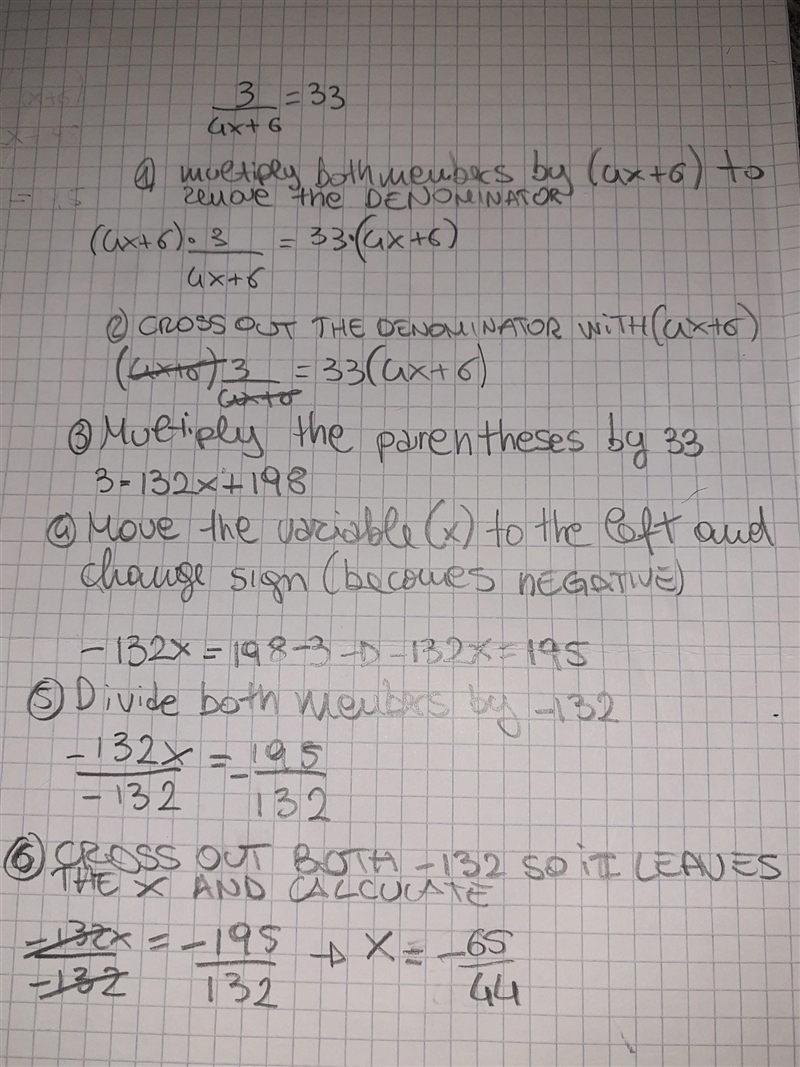 3/4x+6 = 33
① multiply both members by (4x+6) to
remove the DENOMINATOR
(4x+6)·3/4x+6 = 33·(4x+6)
② CROSS OUT THE DENOMINATOR WITH (4x+6)
(4x+6)3/4x+6 = 33(4x+6)
③ Multiply the parentheses by 33
3=132x+198
④ Move the variable (x) to the left and
change sign (becomes NEGATIVE)
-132x=198-3→-132x=195
⑤ Divide both members by -132
-132x/-132 = -195/132
⑥ CROSS OUT BOTH -132 SO IT LEAVES
THE X AND CALCULATE
-132x/-132 = -195/132 → X = -65/44